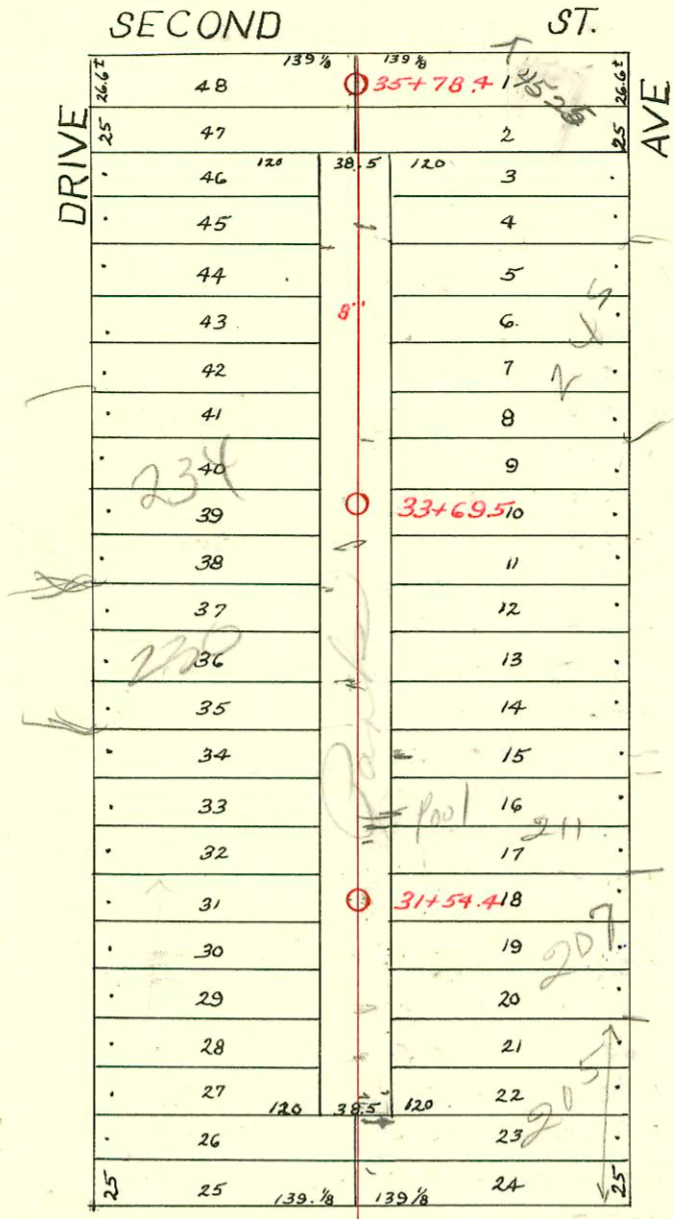 SECOND ST.
DRIVE
AVE
139 1/8 139 1/8
26.6± 48 35+78.4 1 26.6±
25 47 2 25
120 38.5 120
46 3
45 4
44 5
8"
43 6
42 7
41 8
40 9
234
39 33+69.5 10
38 11
37 12
36 13
35 14
34 15
33 Pool 16
211
32 17
31 31+54.4 18
30 19
207
29 20
28 21
205
27 22
120 38.5' 120
26 23
25 25 24 25
139.1/8 139 1/8